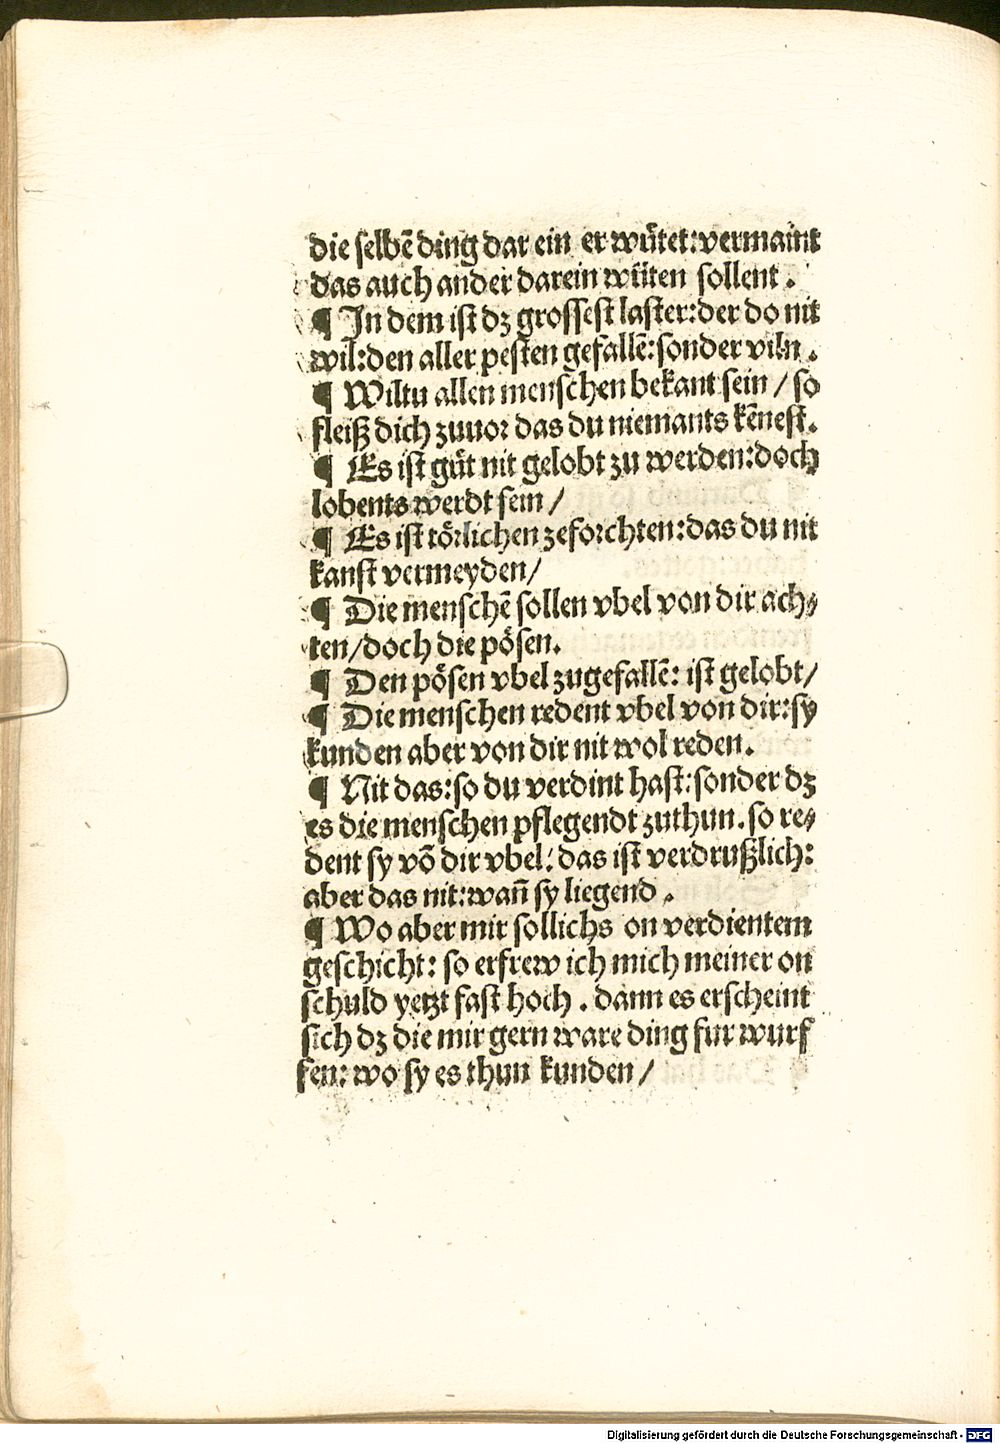 die selbē ding dar ein er wuͤtet:vermaint
das auch ander darein wuͤten sollent .
¶ In dem ist dz grossest laster:der do nit
wil:den aller pesten gefallē:sonder viln .
¶ Wiltu allen menschen bekant sein / so
fleiß dich zuuor das du niemants kēnest.
¶ Es ist guͤt nit gelobt zu werden:doch
lobents werdt sein /
¶ Es ist toͤrlichen zeforchten:das du nit
kanst vermeyden/
¶ Die menschē sollen vbel von dir ach⸗
ten/doch die poͤsen.
¶ Den poͤsen vbel zugefallē: ist gelobt/
¶ Die menschen redent vbel von dir:sy
kunden aber von dir nit wol reden .
¶ Nit das:so du verdint hast:sonder dz
es die menschen pflegendt zuthun.so re⸗
dent sy vō dir vbel: das ist verdrußlich:
aber das nit:wañ sy liegend .
¶ Wo aber mir sollichs on verdientem
geschicht: so erfrew ich mich meiner on
schuld yetzt fast hoch . dann es erscheint
sich dz die mir gern ware ding fur wurf
fen: wo sy es thun kunden /
Digitalisierung gefördert durch die Deutsche Forschungsgemeinschaft - DFG